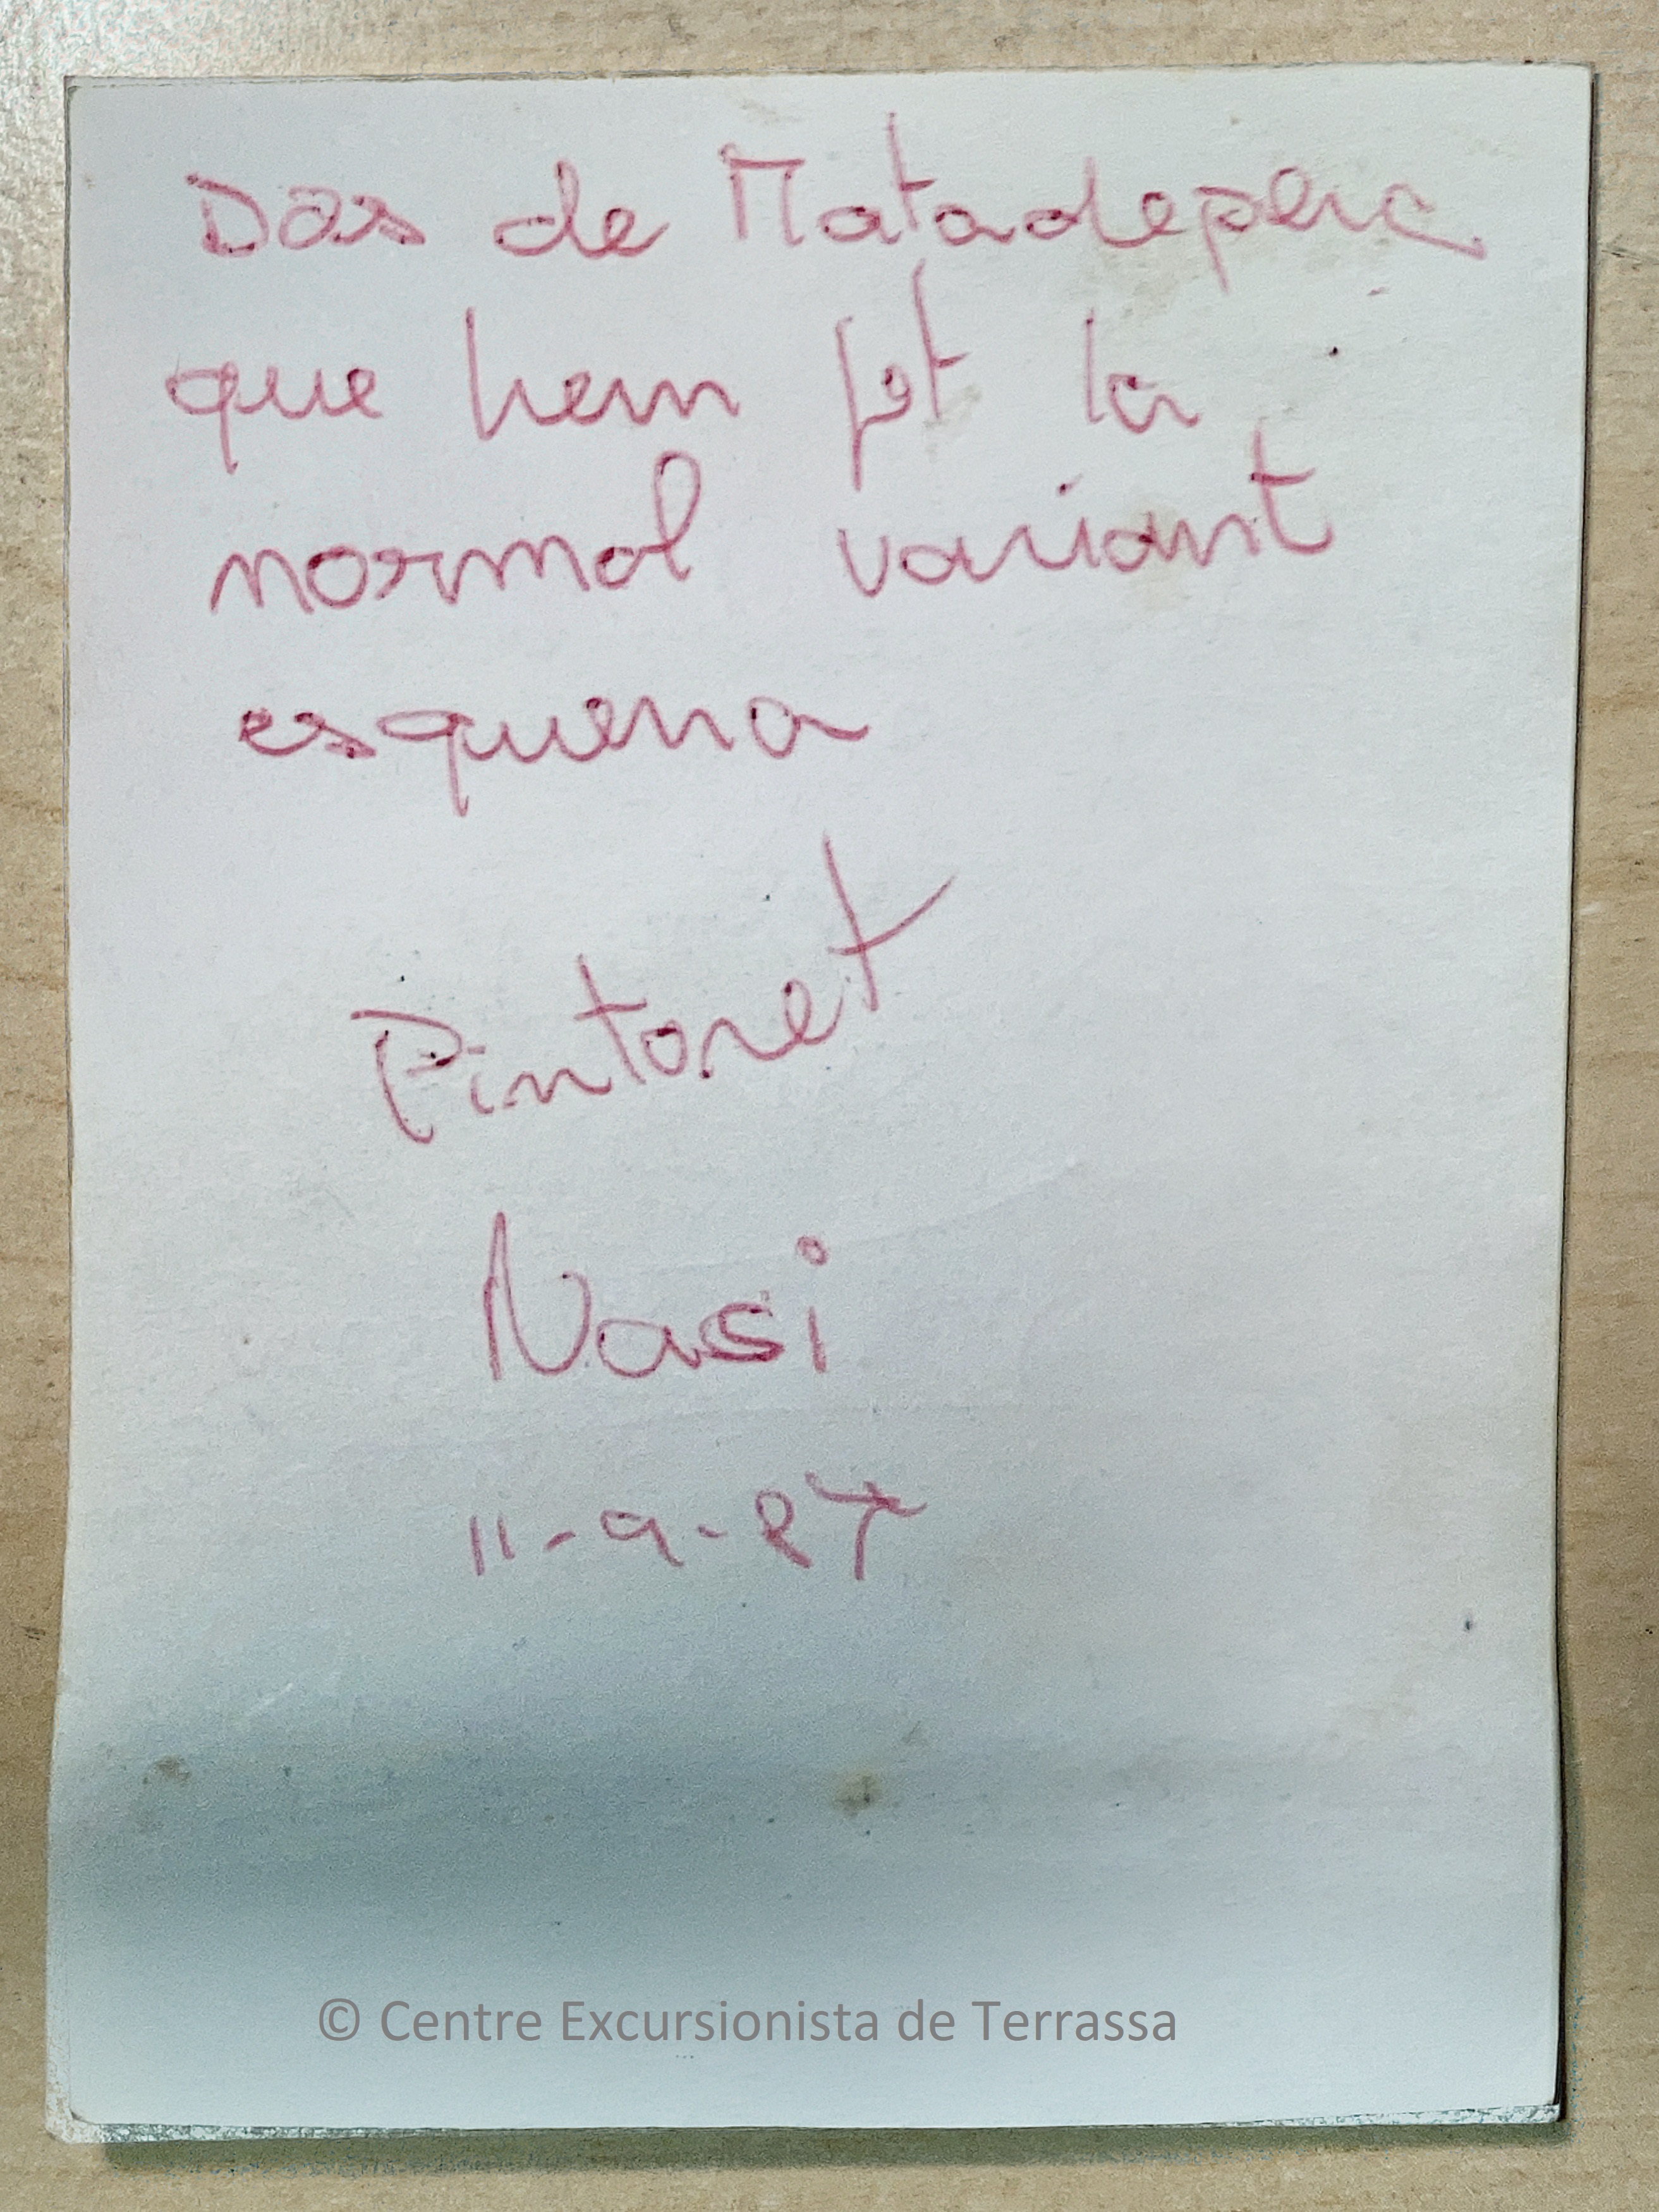 Dos de Matadepera
que hem fet la
normal variant
esquena
Pintoret
Nasi
11-9-87
© Centre Excursionista de Terrassa